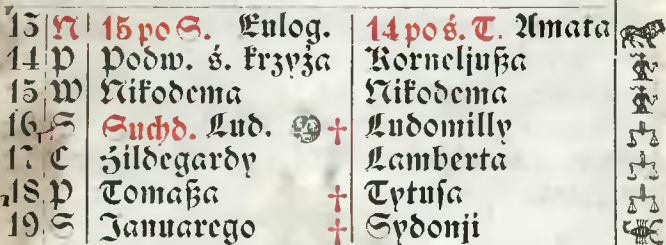 13 N 15 po S. Eulog. 14 po ś. T. Amata
14 P Podw. ś. krzyża Korneljußa
15 W Nikodema Nikodema
16 S Suchd. Lud. † Ludomilly
17 C Hildegardy Lamberta
18 P Tomaßa † Tytuſa
19 S Januarego † Sydonji